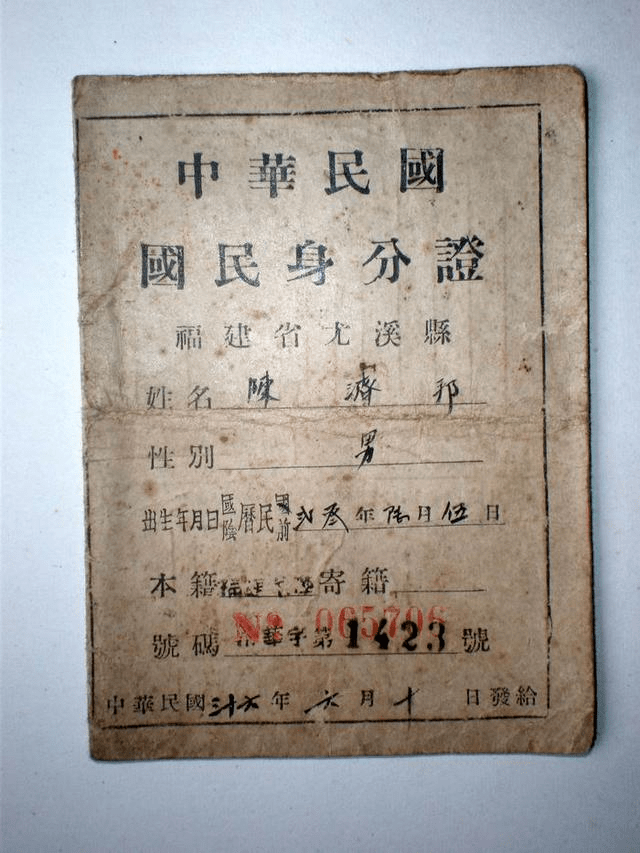 中華民國
國民身分證
福建省尤溪縣
姓名 陳濟邦
性別 男
出生年月日 國陰曆民國前 弍叁年陆月伍日
本籍 福建尤溪 寄籍
№ 065706
號碼 華字第1423號
中華民國三十六年六月十日發給